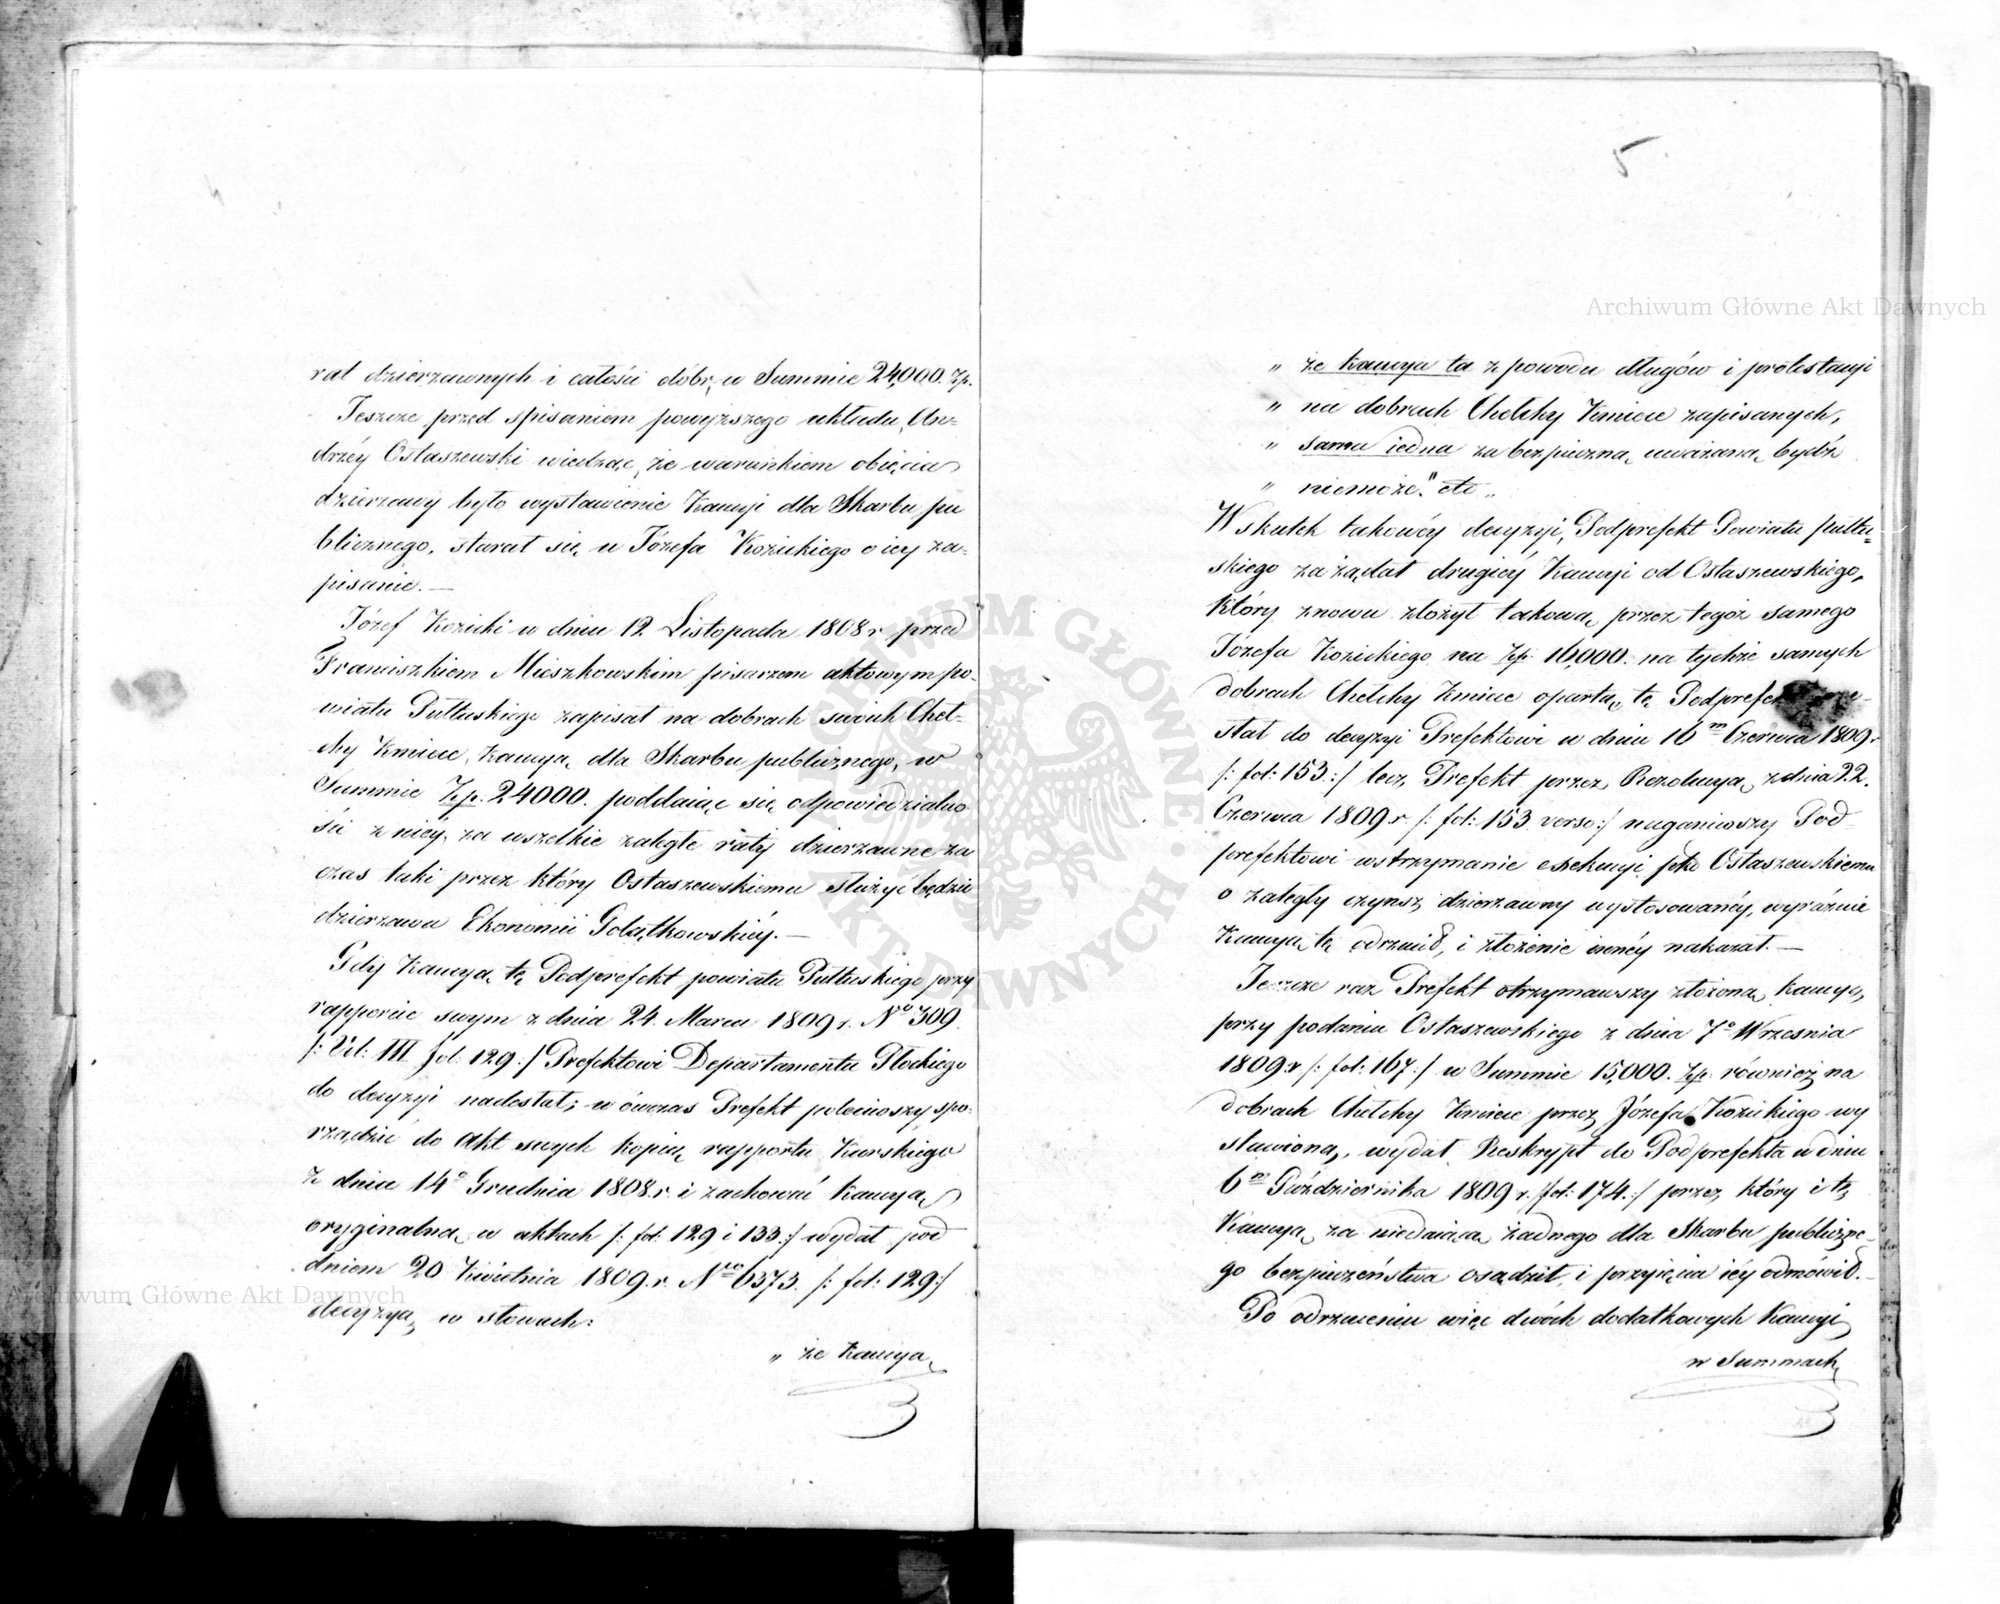 rat dzierzawnych i całości dóbr, w Summie 24,000. Zp.
Jeszcze przed spisaniem powyższego układu, An-
drzéy Ostaszewski wiedząc, że warunkiem obięcia
dzierzawy było wystawienie Kaucyi dla Skarbu pu
blicznego, starał się u Józefa Kozickiego o iéy za-
pisanie. —
Józef Kozicki w dniu 12 Listopada 1808 r. przed
Franciszkiem Mieszkowskim pisarzem aktowym po-
wiatu Pułtuskiego zapisał na dobrach swoich Cheł-
chy Kmiece, Kaucyą dla Skarbu publicznego, w
Summie Zp. 24000. poddaiąc się odpowiedzialno
ści z niéy, za wszelkie zaległe raty dzierzawne za
czas taki przez który Ostaszewskiemu służyć będzie
dzierzawa Ekonomii Golątkowskiéy. —
Gdy Kaucyą tę Podprefekt powiatu Pułtuskiego przy
rapporcie swym z dnia 24. Marca 1809 r. No 309
/: Vol: III fol. 129 :/ Prefektowi Departamentu Płockiego
do decyzyi nadesłał; wówczas Prefekt poleciwszy spo-
rządzić do Akt swych kopią rapportu Kurskiego
z dnia 14o Grudnia 1808. r. i zachować Kaucyą
oryginalną w aktach /: fol: 129 i 133 :/ wydał pod
dniem 20 Kwietnia 1809. r. Nro 6373. /: fol: 129 :/
decyzyą w słowach:
„ że Kaucya
5
„ że Kaucya ta z powodu długów i protestacyi
„ na dobrach Chełchy Kmiece zapisanych,
„ sama iedna za bezpieczną uważaną bydź
„ niemoże." etc „
Wskutek takowéy decyzyi, Podprefekt Powiatu Pułtu-
skiego zażądał drugiéy Kaucyi od Ostaszewskiego,
który znowu złożył takową przez tegoż samego
Józefa Kozickiego na Zp. 16,000. na tychże samych
dobrach Chełchy Kmiece opartą, tę Podprefekt prze-
słał do decyzyi Prefektowi w dniu 16m Czerwca 1809 r
/: fol: 153 :/ lecz Prefekt przez Rezolucyą z dnia 22.
Czerwca 1809 r. /: fol: 153 verso :/ naganiwszy Pod-
prefektowi wstrzymanie exekucyi pko Ostaszewskiemu
o zaległy czynsz dzierzawny wystosowanéy, wyraźnie
Kaucyą tę odrzucił, i złożenie innéy nakazał. —
Jeszcze raz Prefekt otrzymawszy złożoną kaucyą,
przy podaniu Ostaszewskiego z dnia 7o Września
1809 r /: fol: 167 :/ w Summie 15,000. Zp. również na
dobrach Chełchy Kmiece przez Józefa Kozickiego wy
stawioną, wydał Reskrypt do Podprefekta w dniu
6m Października 1809 r. /: fol: 174. :/ przez który i tę
Kaucyą, za niedaiącą żadnego dla Skarbu publiczne-
go bezpieczeństwa osądził, i przyięcia iéy odmówił. —
Po odrzuceniu więc dwóch dodatkowych Kaucyi
w Summach
Archiwum Główne Akt Dawnych
Archiwum Główne Akt Dawnych
ARCHIWUM GŁÓWNE AKT DAWNYCH